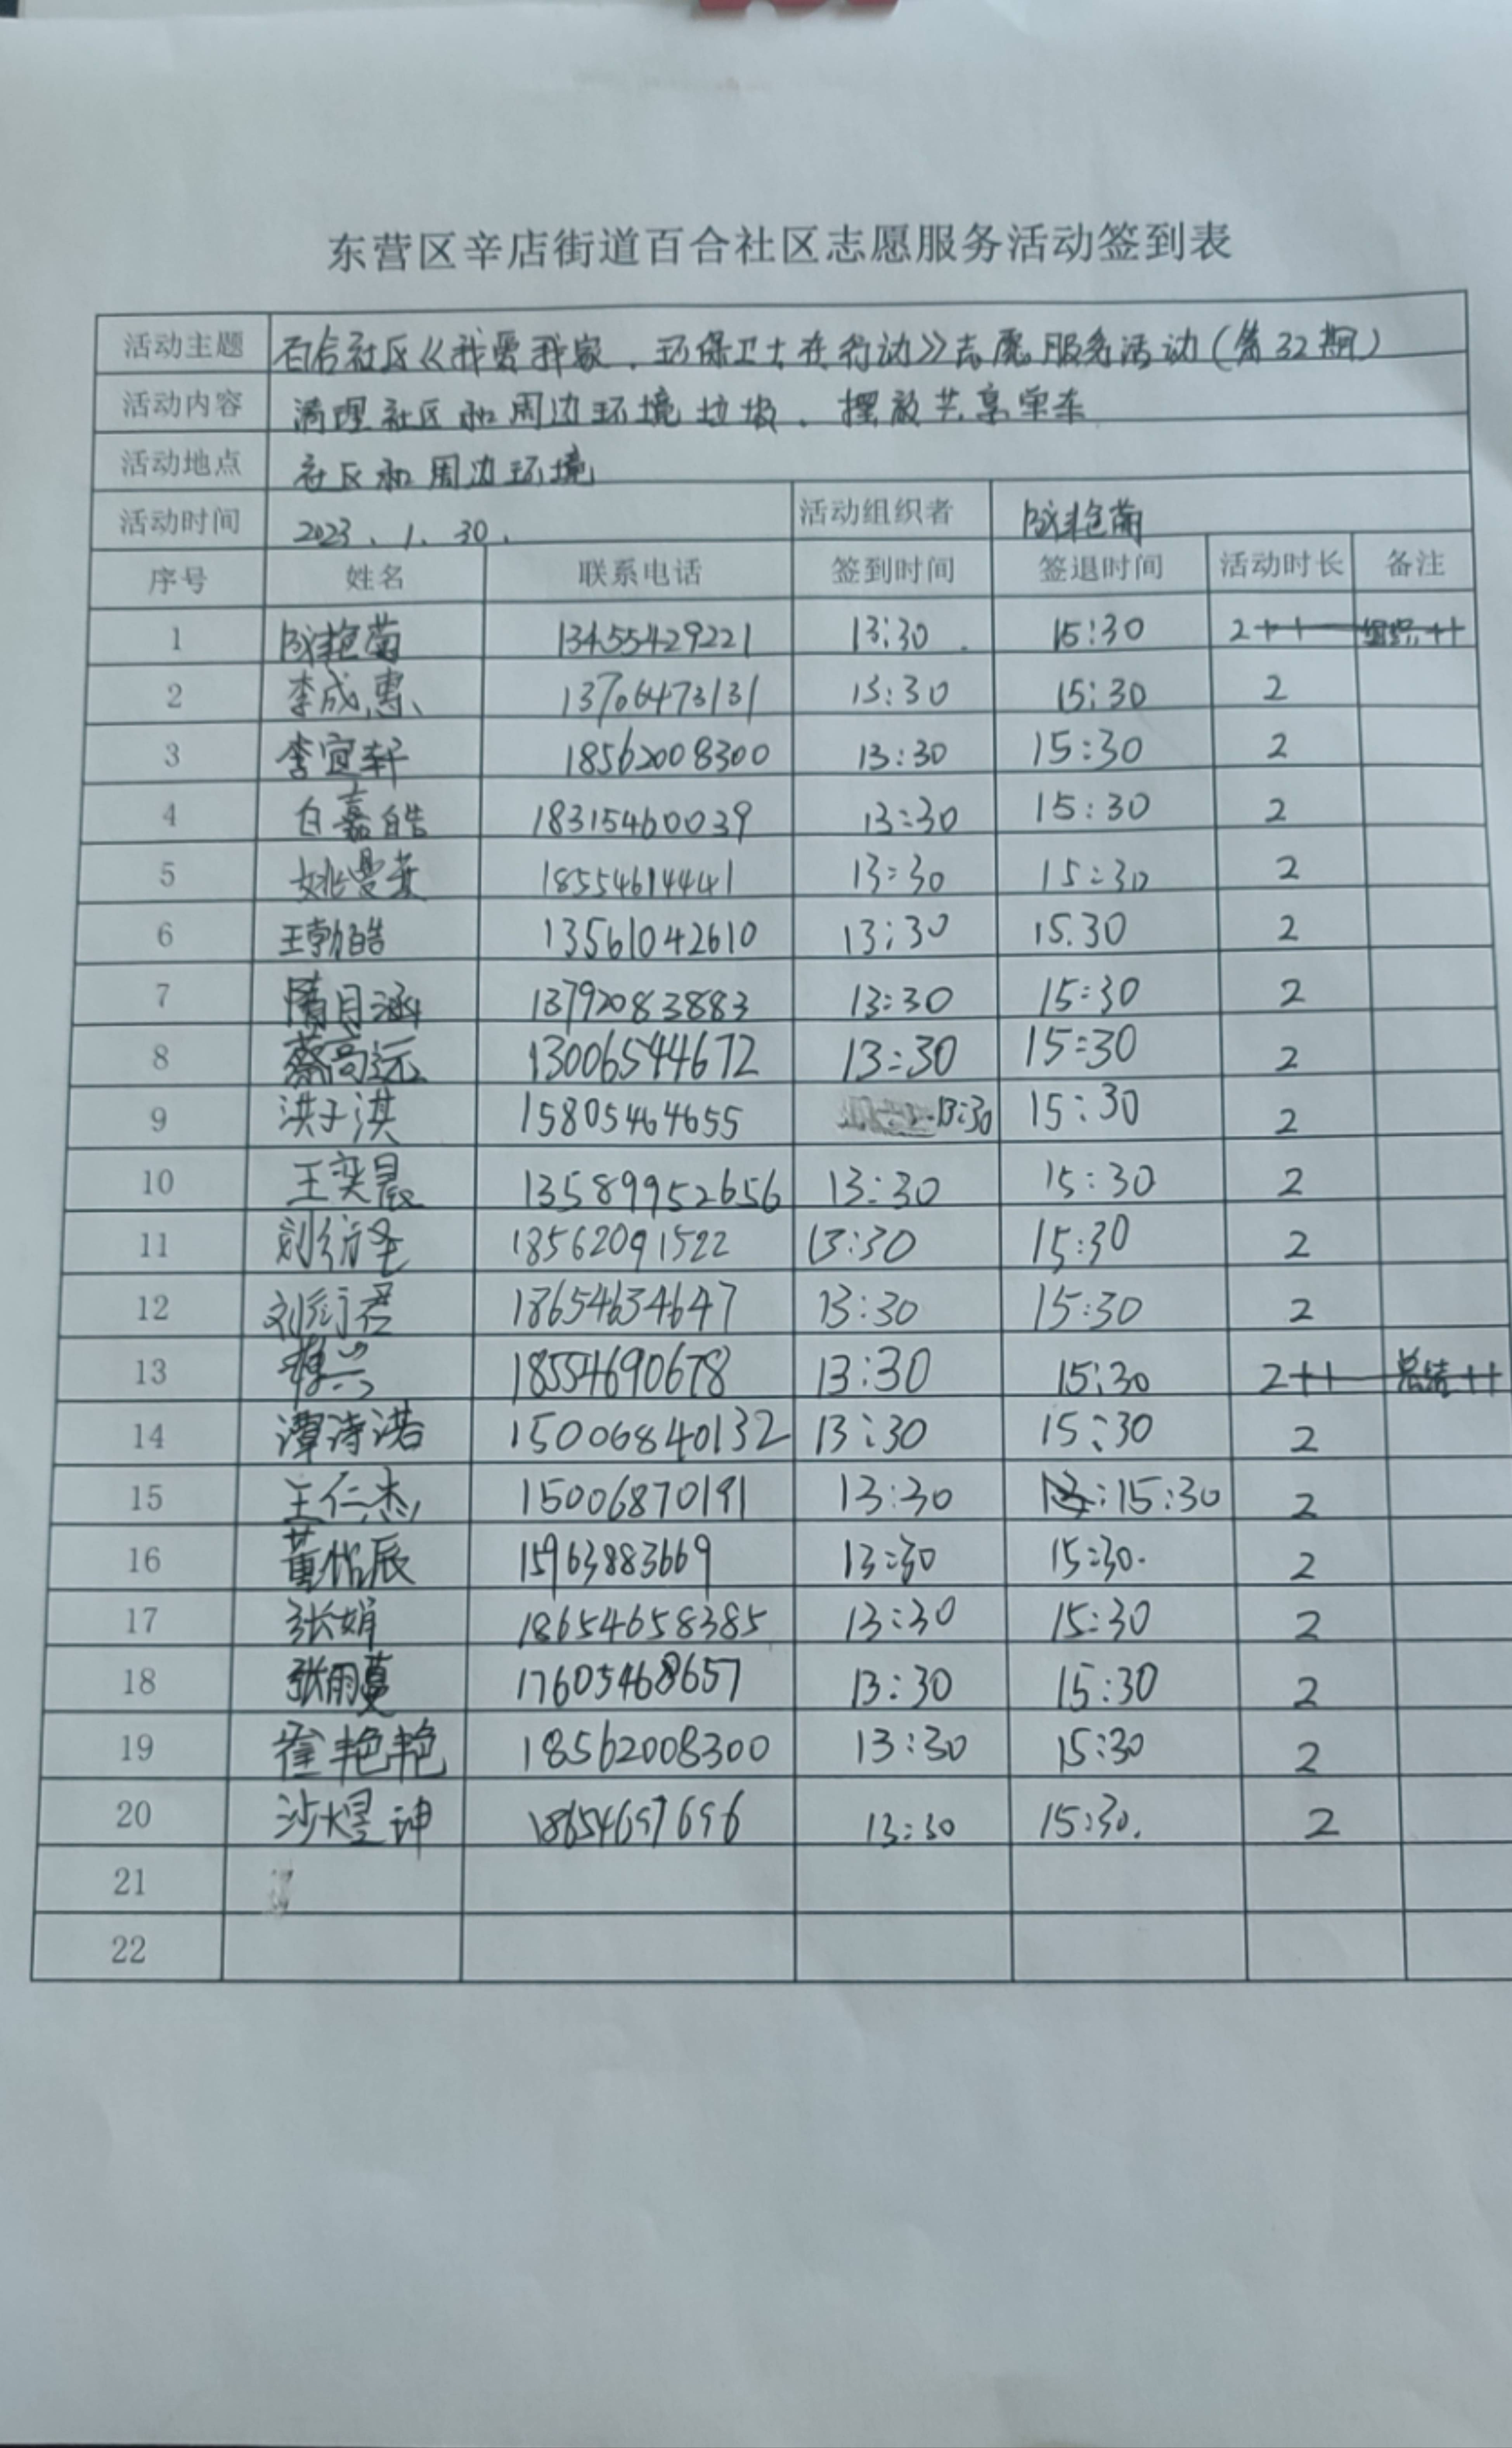 东营区辛店街道百合社区志愿服务活动签到表
活动主题 百合社区《我爱我家.环保卫士在行动》志愿服务活动(第32期)
活动内容 清理社区和周边环境垃圾.摆放共享单车
活动地点 社区和周边环境
活动时间 2023.1.30. 活动组织者 艳菊
序号 姓名 联系电话 签到时间 签退时间 活动时长 备注
1 艳菊 13455429221 13:30 15:30 2
2 李成惠 13706473131 13:30 15:30 2
3 李宜轩 18562008300 13:30 15:30 2
4 白嘉皓 18315460039 13:30 15:30 2
5 姚曼 18554614441 13:30 15:30 2
6 王勃皓 13561042610 13:30 15.30 2
7 隋月涵 13792083883 13:30 15:30 2
8 蔡高远 13006544672 13:30 15:30 2
9 洪子淇 15805464655 13:30 15:30 2
10 王奕晨 13589952656 13:30 15:30 2
11 刘衍圣 18562091522 13:30 15:30 2
12 刘衍君 18654634647 13:30 15:30 2
13 18554690678 13:30 15:30 2+1 总结+1
14 谭诗诺 15006840132 13:30 15:30 2
15 王仁杰 15006870191 13:30 15:30 2
16 董怡辰 15963883669 13:30 15:30. 2
17 张娟 18654658385 13:30 15:30 2
18 张雨蔓 17605468657 13:30 15:30 2
19 崔艳艳 18562008300 13:30 15:30 2
20 沙煜坤 18654697696 13:30 15:30. 2
21
22